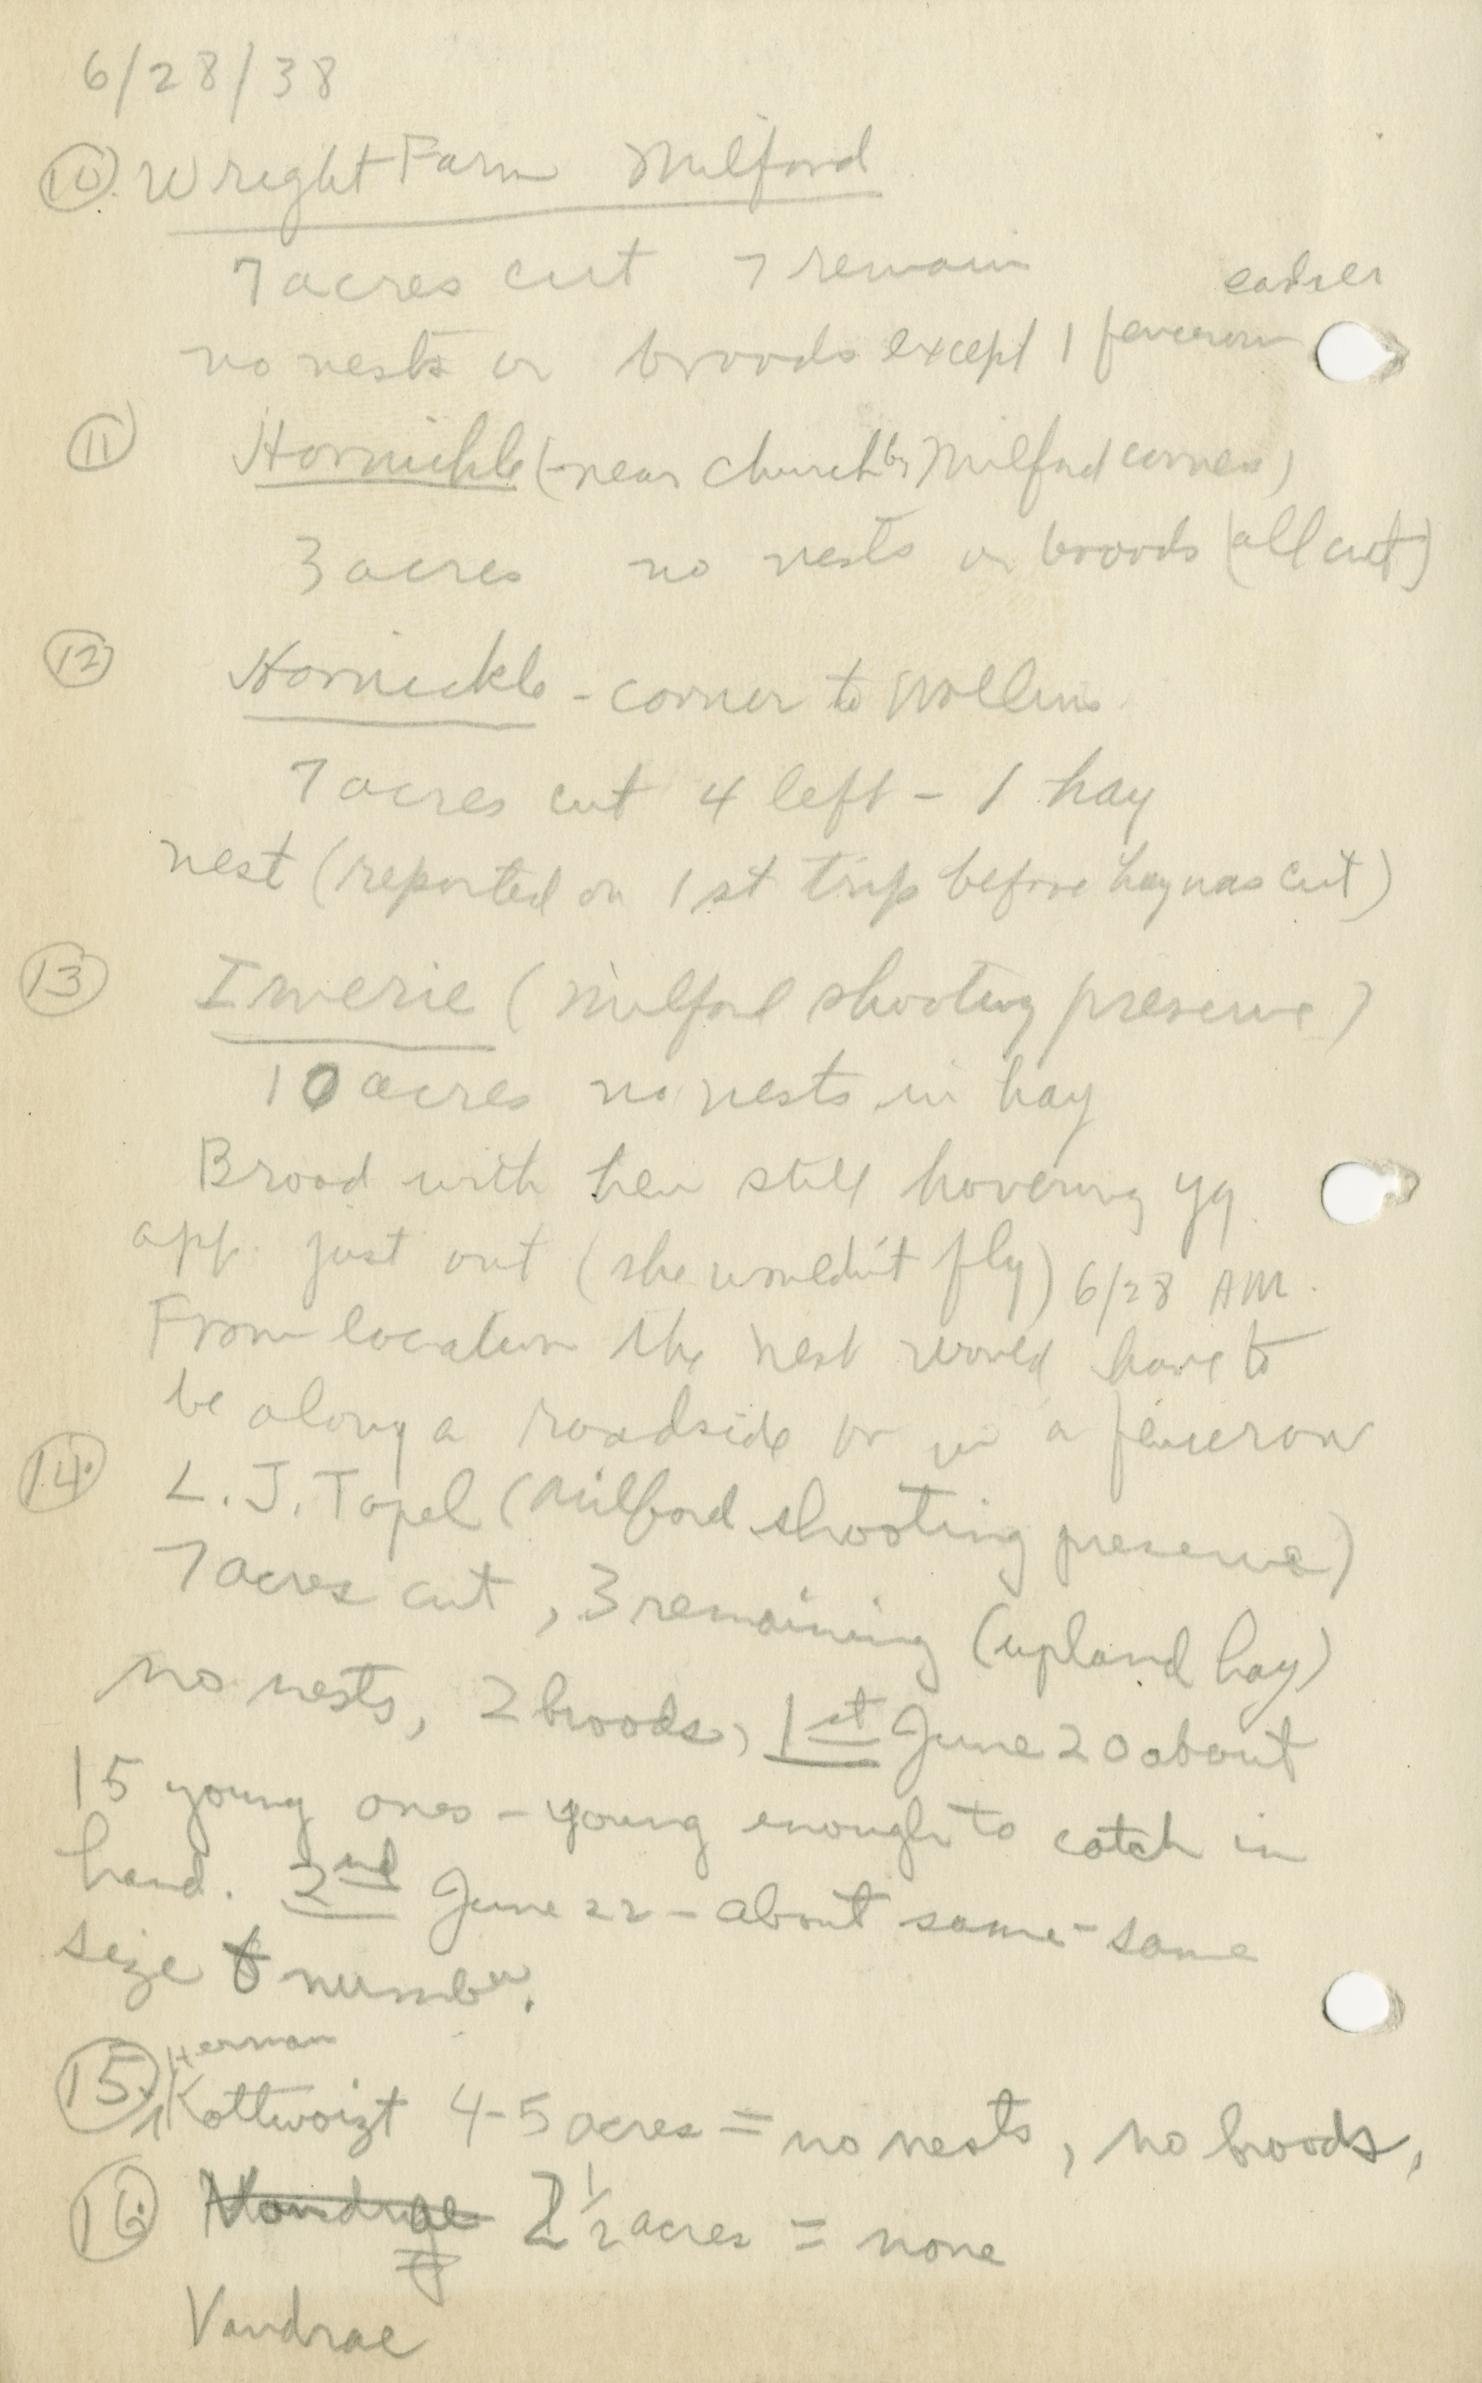 6/28/38
(10). Wright Farm Milford
7 acres cut 7 remain
earlier
no nests or broods except 1 fencerow
(11) Hornickle (near church by Milford corners)
3 acres no nests or broods (all cut)
(12) Hornickle - corner to
7 acres cut 4 left - 1 hay
nest (reported on 1st trip before hay was cut)
(13) (Milford shooting preserve)
10 acres no nests in hay
Brood with hen still hovering yg
app. just out (she wouldn't fly) 6/28 AM.
From location the nest would have to
be along a roadside or in a fencerow
(14) L. J. Topel (Milford shooting preserve)
7 acres cut, 3 remaining (upland hay)
no nests, 2 broods, 1st June 20 about
15 young ones - young enough to catch in
hand. 2nd June 22 - about same - same
size & number.
Herman
(15) Kottwoizt 4-5 acres = no nests, no broods,
(16) 2 1/2 acres = none
Vandrae